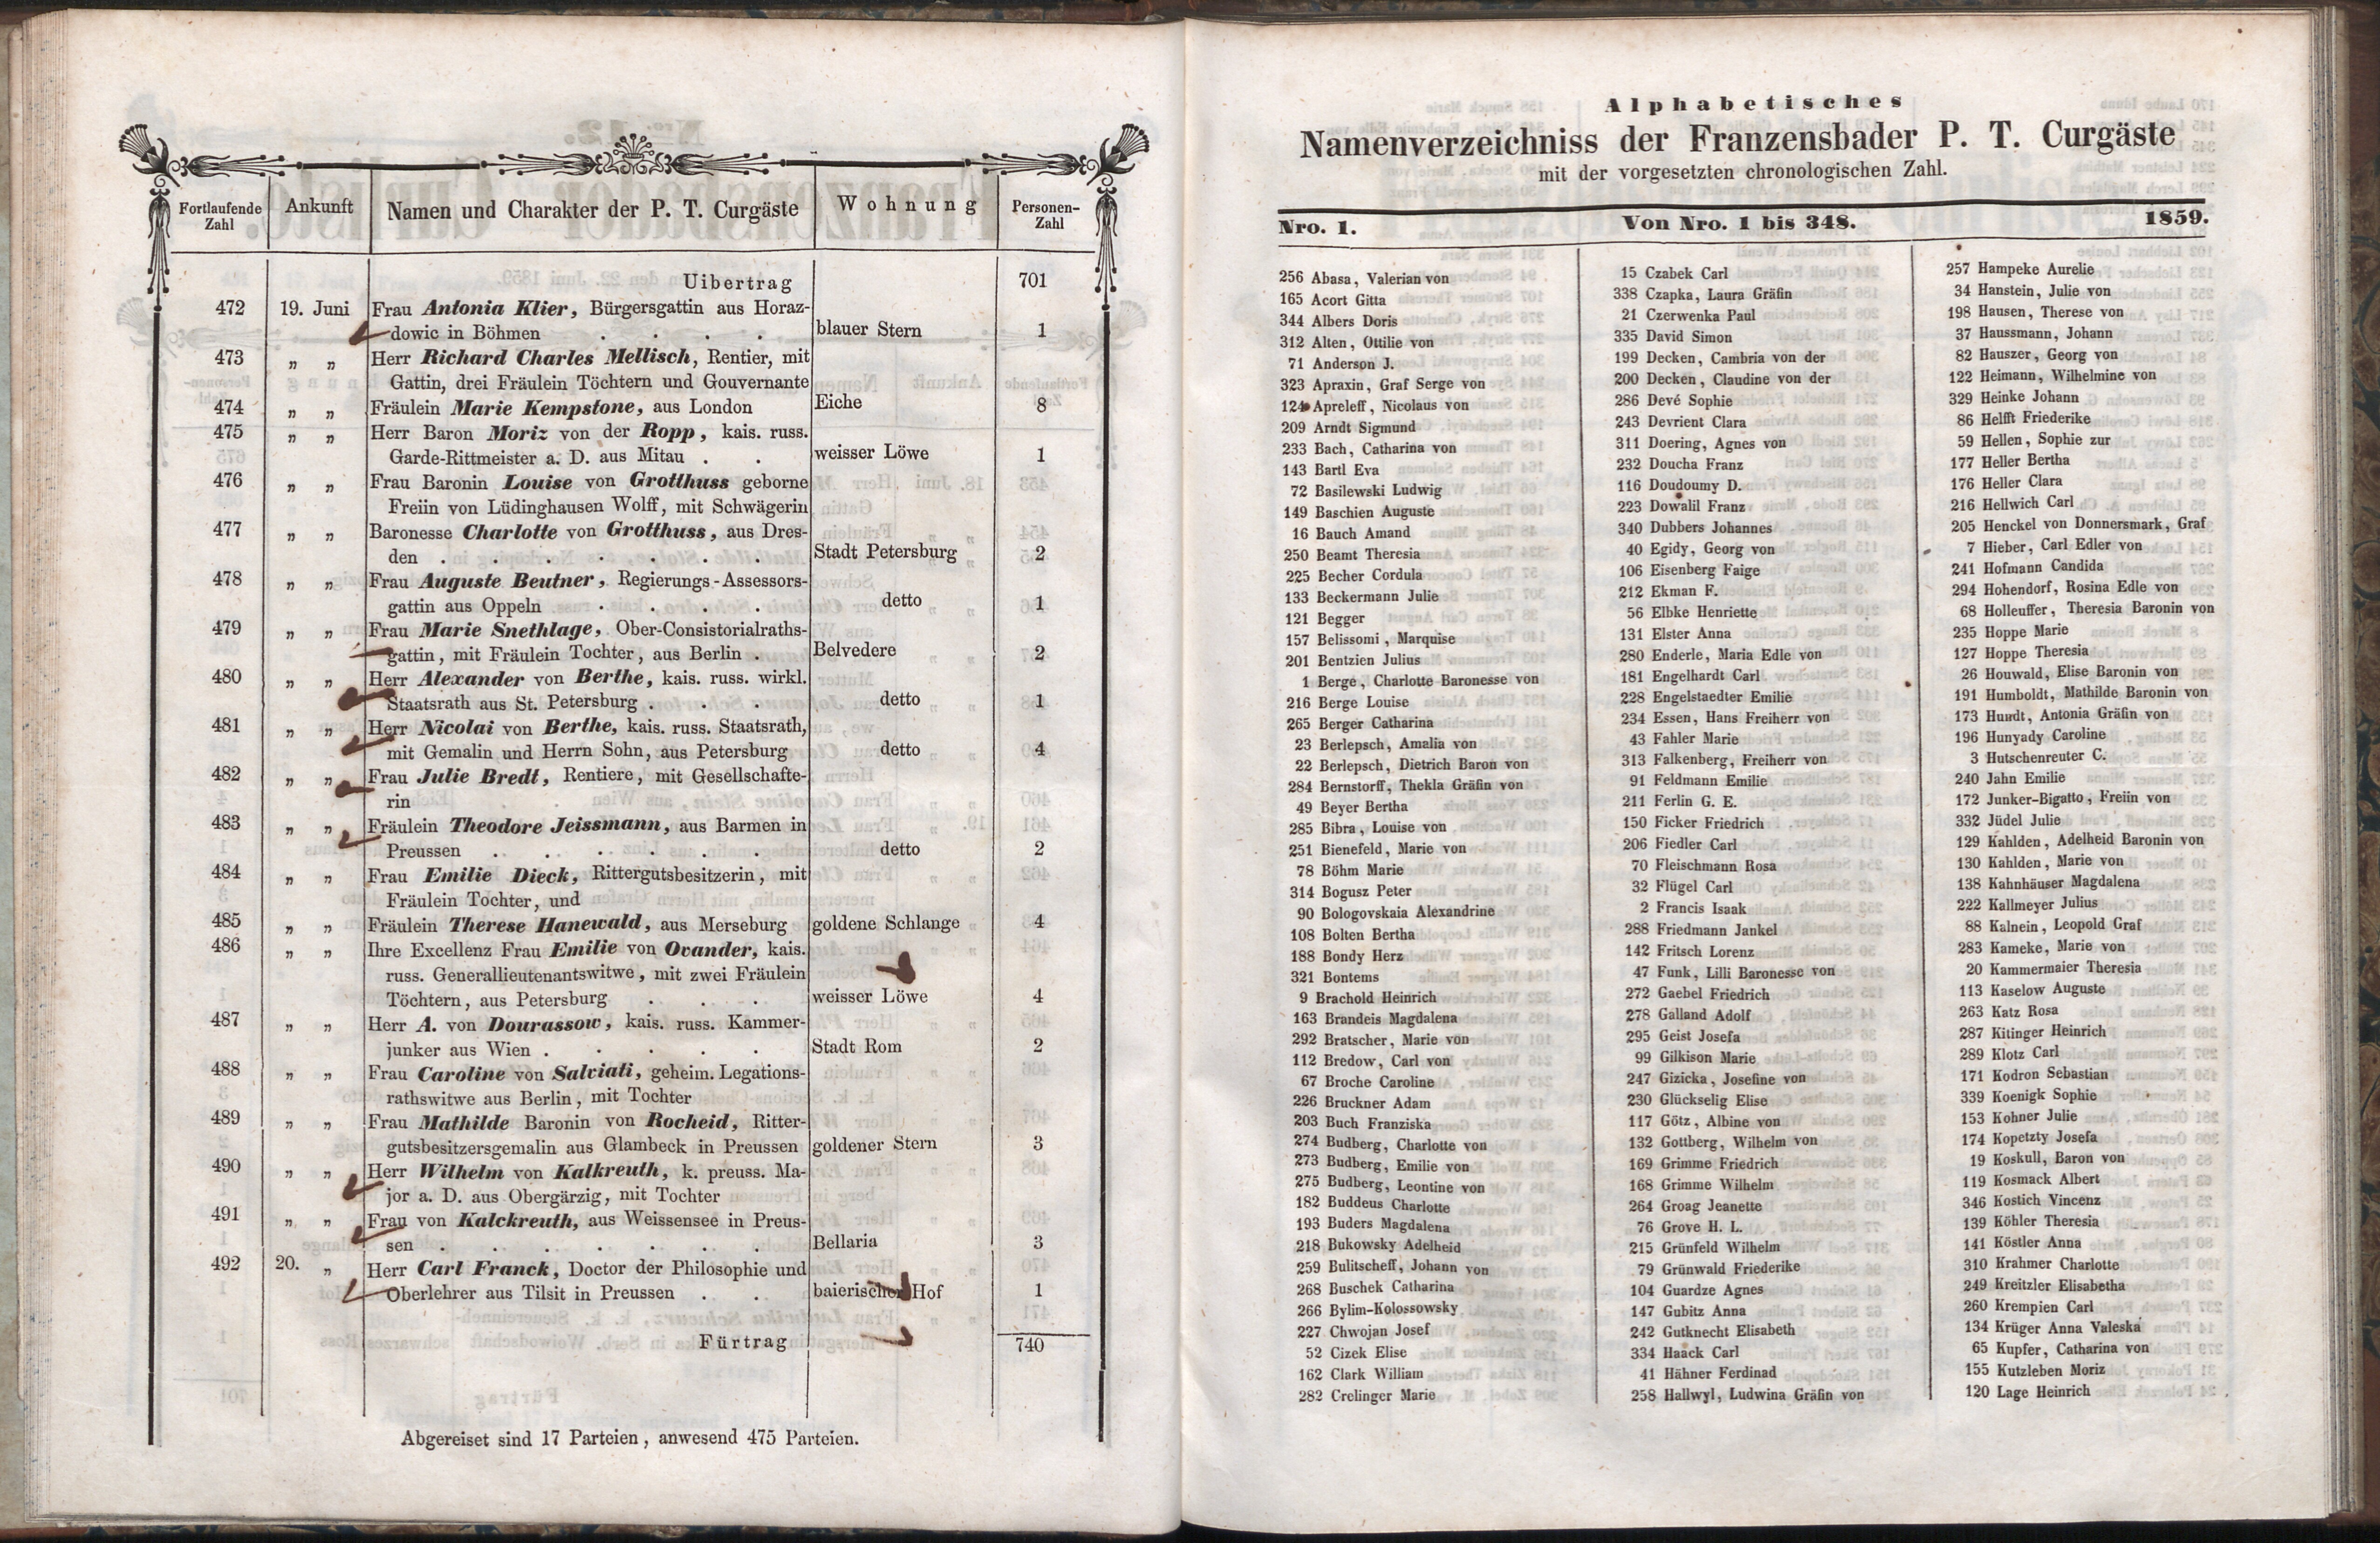 Fortlaufende Zahl	Ankunft	Namen und Charakter der P. T. Curgäste	Wohnung	Personen-Zahl
Uibertrag	701
472	19. Juni	Frau Antonia Klier, Bürgersgattin aus Horaz-
dowic in Böhmen . . . .	blauer Stern	1
473	„ „	Herr Richard Charles Mellisch, Rentier, mit
Gattin, drei Fräulein Töchtern und Gouvernante
474	„ „	Fräulein Marie Kempstone, aus London	Eiche	8
475	„ „	Herr Baron Moriz von der Ropp, kais. russ.
Garde-Rittmeister a. D. aus Mitau . .	weisser Löwe	1
476	„ „	Frau Baronin Louise von Grotthuss geborne
Freiin von Lüdinghausen Wolff, mit Schwägerin
477	„ „	Baronesse Charlotte von Grotthuss, aus Dres-
den . . . . . . .	Stadt Petersburg	2
478	„ „	Frau Auguste Beutner, Regierungs-Assessors-
gattin aus Oppeln . . . .	detto	1
479	„ „	Frau Marie Snethlage, Ober-Consistorialraths-
gattin, mit Fräulein Tochter, aus Berlin .	Belvedere	2
480	„ „	Herr Alexander von Berthe, kais. russ. wirkl.
Staatsrath aus St. Petersburg . . .	detto	1
481	„ „	Herr Nicolai von Berthe, kais. russ. Staatsrath,
mit Gemalin und Herrn Sohn, aus Petersburg	detto	4
482	„ „	Frau Julie Bredt, Rentiere, mit Gesellschafte-
rin
483	„ „	Fräulein Theodore Jeissmann, aus Barmen in
Preussen . . . . . .	detto	2
484	„ „	Frau Emilie Dieck, Rittergutsbesitzerin, mit
Fräulein Tochter, und
485	„ „	Fräulein Therese Hanewald, aus Merseburg	goldene Schlange	4
486	„ „	Ihre Excellenz Frau Emilie von Ovander, kais.
russ. Generallieutenantswitwe, mit zwei Fräulein
Töchtern, aus Petersburg . . .	weisser Löwe	4
487	„ „	Herr A. von Dourassow, kais. russ. Kammer-
junker aus Wien . . . . .	Stadt Rom	2
488	„ „	Frau Caroline von Salviati, geheim. Legations-
rathswitwe aus Berlin, mit Tochter
489	„ „	Frau Mathilde Baronin von Rocheid, Ritter-
gutsbesitzersgemalin aus Glambeck in Preussen	goldener Stern	3
490	„ „	Herr Wilhelm von Kalkreuth, k. preuss. Ma-
jor a. D. aus Obergärzig, mit Tochter
491	„ „	Frau von Kalckreuth, aus Weissensee in Preus-
sen . . . . . . .	Bellaria	3
492	20. „	Herr Carl Franck, Doctor der Philosophie und
Oberlehrer aus Tilsit in Preussen . .	baierischer Hof	1
Fürtrag	740
Abgereiset sind 17 Parteien, anwesend 475 Parteien.
Alphabetisches
Namenverzeichniss der Franzensbader P. T. Curgäste
mit der vorgesetzten chronologischen Zahl.
Nro. 1.	Von Nro. 1 bis 348.	1859.
256 Abasa, Valerian von
165 Acort Gitta
344 Albers Doris
312 Alten, Ottilie von
71 Anderson J.
323 Apraxin, Graf Serge von
124 Apreleff, Nicolaus von
209 Arndt Sigmund
233 Bach, Catharina von
143 Bartl Eva
72 Basilewski Ludwig
149 Baschien Auguste
16 Bauch Amand
250 Beamt Theresia
225 Becher Cordula
133 Beckermann Julie
121 Begger
157 Belissomi, Marquise
201 Bentzien Julius
1 Berge, Charlotte Baronesse von
216 Berge Louise
265 Berger Catharina
23 Berlepsch, Amalia von
22 Berlepsch, Dietrich Baron von
284 Bernstorff, Thekla Gräfin von
49 Beyer Bertha
285 Bibra, Louise von
251 Bienefeld, Marie von
78 Böhm Marie
314 Bogusz Peter
90 Bologovskaia Alexandrine
108 Bolten Bertha
188 Bondy Herz
321 Bontems
9 Brachold Heinrich
163 Brandeis Magdalena
292 Bratscher, Marie von
112 Bredow, Carl von
67 Broche Caroline
226 Bruckner Adam
203 Buch Franziska
274 Budberg, Charlotte von
273 Budberg, Emilie von
275 Budberg, Leontine von
182 Buddeus Charlotte
193 Buders Magdalena
218 Bukowsky Adelheid
259 Bulitscheff, Johann von
268 Buschek Catharina
266 Bylim-Kolossowsky
227 Chwojan Josef
52 Cizek Elise
162 Clark William
282 Crelinger Marie
15 Czabek Carl
338 Czapka, Laura Gräfin
21 Czerwenka Paul
335 David Simon
199 Decken, Cambria von der
200 Decken, Claudine von der
286 Devé Sophie
243 Devrient Clara
311 Doering, Agnes von
232 Doucha Franz
116 Doudoumy D.
223 Dowalil Franz
340 Dubbers Johannes
40 Egidy, Georg von
106 Eisenberg Faige
212 Ekman F.
56 Elbke Henriette
131 Elster Anna
280 Enderle, Maria Edle von
181 Engelhardt Carl
228 Engelstaedter Emilie
234 Essen, Hans Freiherr von
43 Fahler Marie
313 Falkenberg, Freiherr von
91 Feldmann Emilie
211 Ferlin G. E.
150 Ficker Friedrich
206 Fiedler Carl
70 Fleischmann Rosa
32 Flügel Carl
2 Francis Isaak
288 Friedmann Jankel
142 Fritsch Lorenz
47 Funk, Lilli Baronesse von
272 Gaebel Friedrich
278 Galland Adolf
295 Geist Josefa
99 Gilkison Marie
247 Gizicka, Josefine von
230 Glückselig Elise
117 Götz, Albine von
132 Gottberg, Wilhelm von
169 Grimme Friedrich
168 Grimme Wilhelm
264 Groag Jeanette
76 Grove H. L.
215 Grünfeld Wilhelm
79 Grünwald Friederike
104 Guardze Agnes
147 Gubitz Anna
242 Gutknecht Elisabeth
334 Haack Carl
41 Hähner Ferdinad
258 Hallwyl, Ludwina Gräfin von
257 Hampeke Aurelie
34 Hanstein, Julie von
198 Hausen, Therese von
37 Haussmann, Johann
82 Hauszer, Georg von
122 Heimann, Wilhelmine von
329 Heinke Johann
86 Helfft Friederike
59 Hellen, Sophie zur
177 Heller Bertha
176 Heller Clara
216 Hellwich Carl
205 Henckel von Donnersmark, Graf
7 Hieber, Carl Edler von
241 Hofmann Candida
294 Hohendorf, Rosina Edle von
68 Holleuffer, Theresia Baronin von
235 Hoppe Marie
127 Hoppe Theresia
26 Houwald, Elise Baronin von
191 Humboldt, Mathilde Baronin von
173 Hundt, Antonia Gräfin von
196 Hunyady Caroline
3 Hutschenreuter C.
240 Jahn Emilie
172 Junker-Bigatto, Freiin von
332 Jüdel Julie
129 Kahlden, Adelheid Baronin von
130 Kahlden, Marie von
138 Kahnhäuser Magdalena
222 Kallmeyer Julius
88 Kalnein, Leopold Graf
283 Kameke, Marie von
20 Kammermaier Theresia
113 Kaselow Auguste
263 Katz Rosa
287 Kitinger Heinrich
289 Klotz Carl
171 Kodron Sebastian
339 Koenigk Sophie
153 Kohner Julie
174 Kopetzty Josefa
19 Koskull, Baron von
119 Kosmack Albert
346 Kostich Vincenz
139 Köhler Theresia
141 Köstler Anna
310 Krahmer Charlotte
249 Kreitzler Elisabetha
260 Krempien Carl
134 Krüger Anna Valeska
65 Kupfer, Catharina von
155 Kutzleben Moriz
120 Lage Heinrich